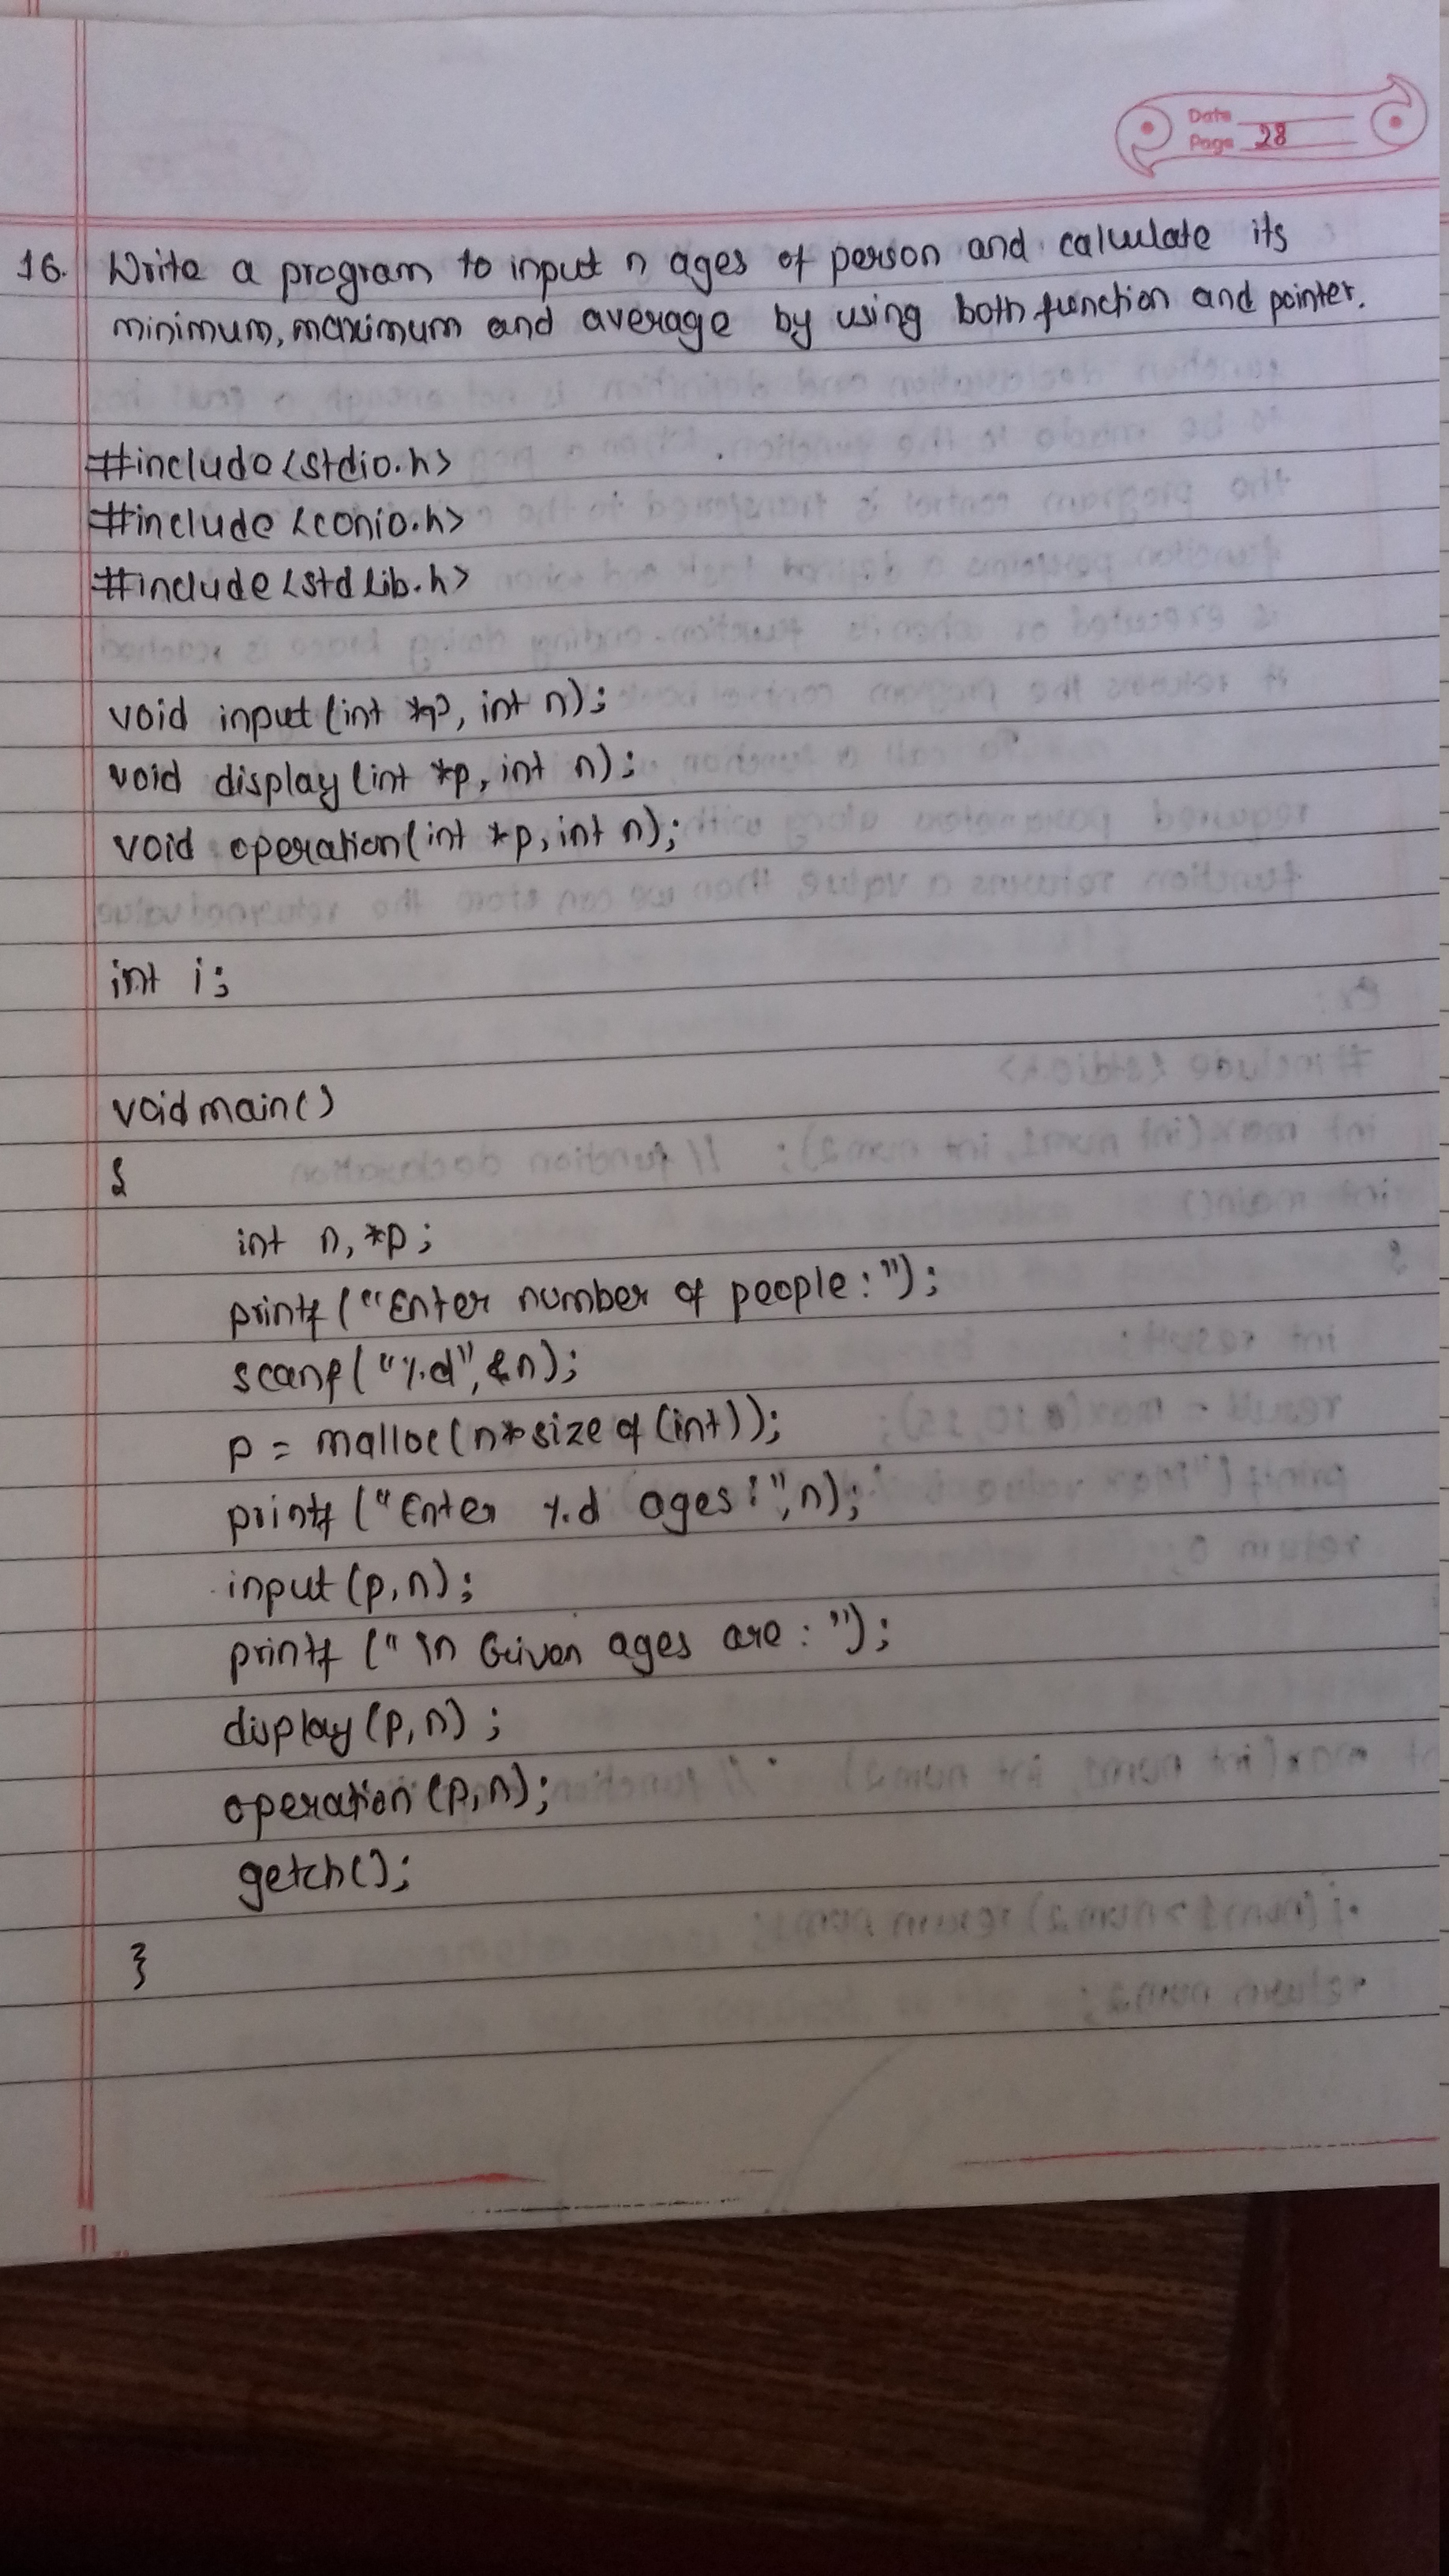 Date
Page 28
16. Write a program to input n ages of person and calculate its
minimum, maximum and average by using both function and pointer.
#include<stdio.h>
#include<conio.h>
#include<stdlib.h>
void input(int *p, int n);
void display(int *p, int n);
void operation(int *p, int n);
int i;
void main()
{
int n, *p;
printf("Enter number of people:");
scanf("%d",&n);
p = malloc(n*sizeof(int));
printf("Enter %d ages:",n);
input(p,n);
printf("\n Given ages are: ");
display(p,n);
operation(p,n);
getch();
}